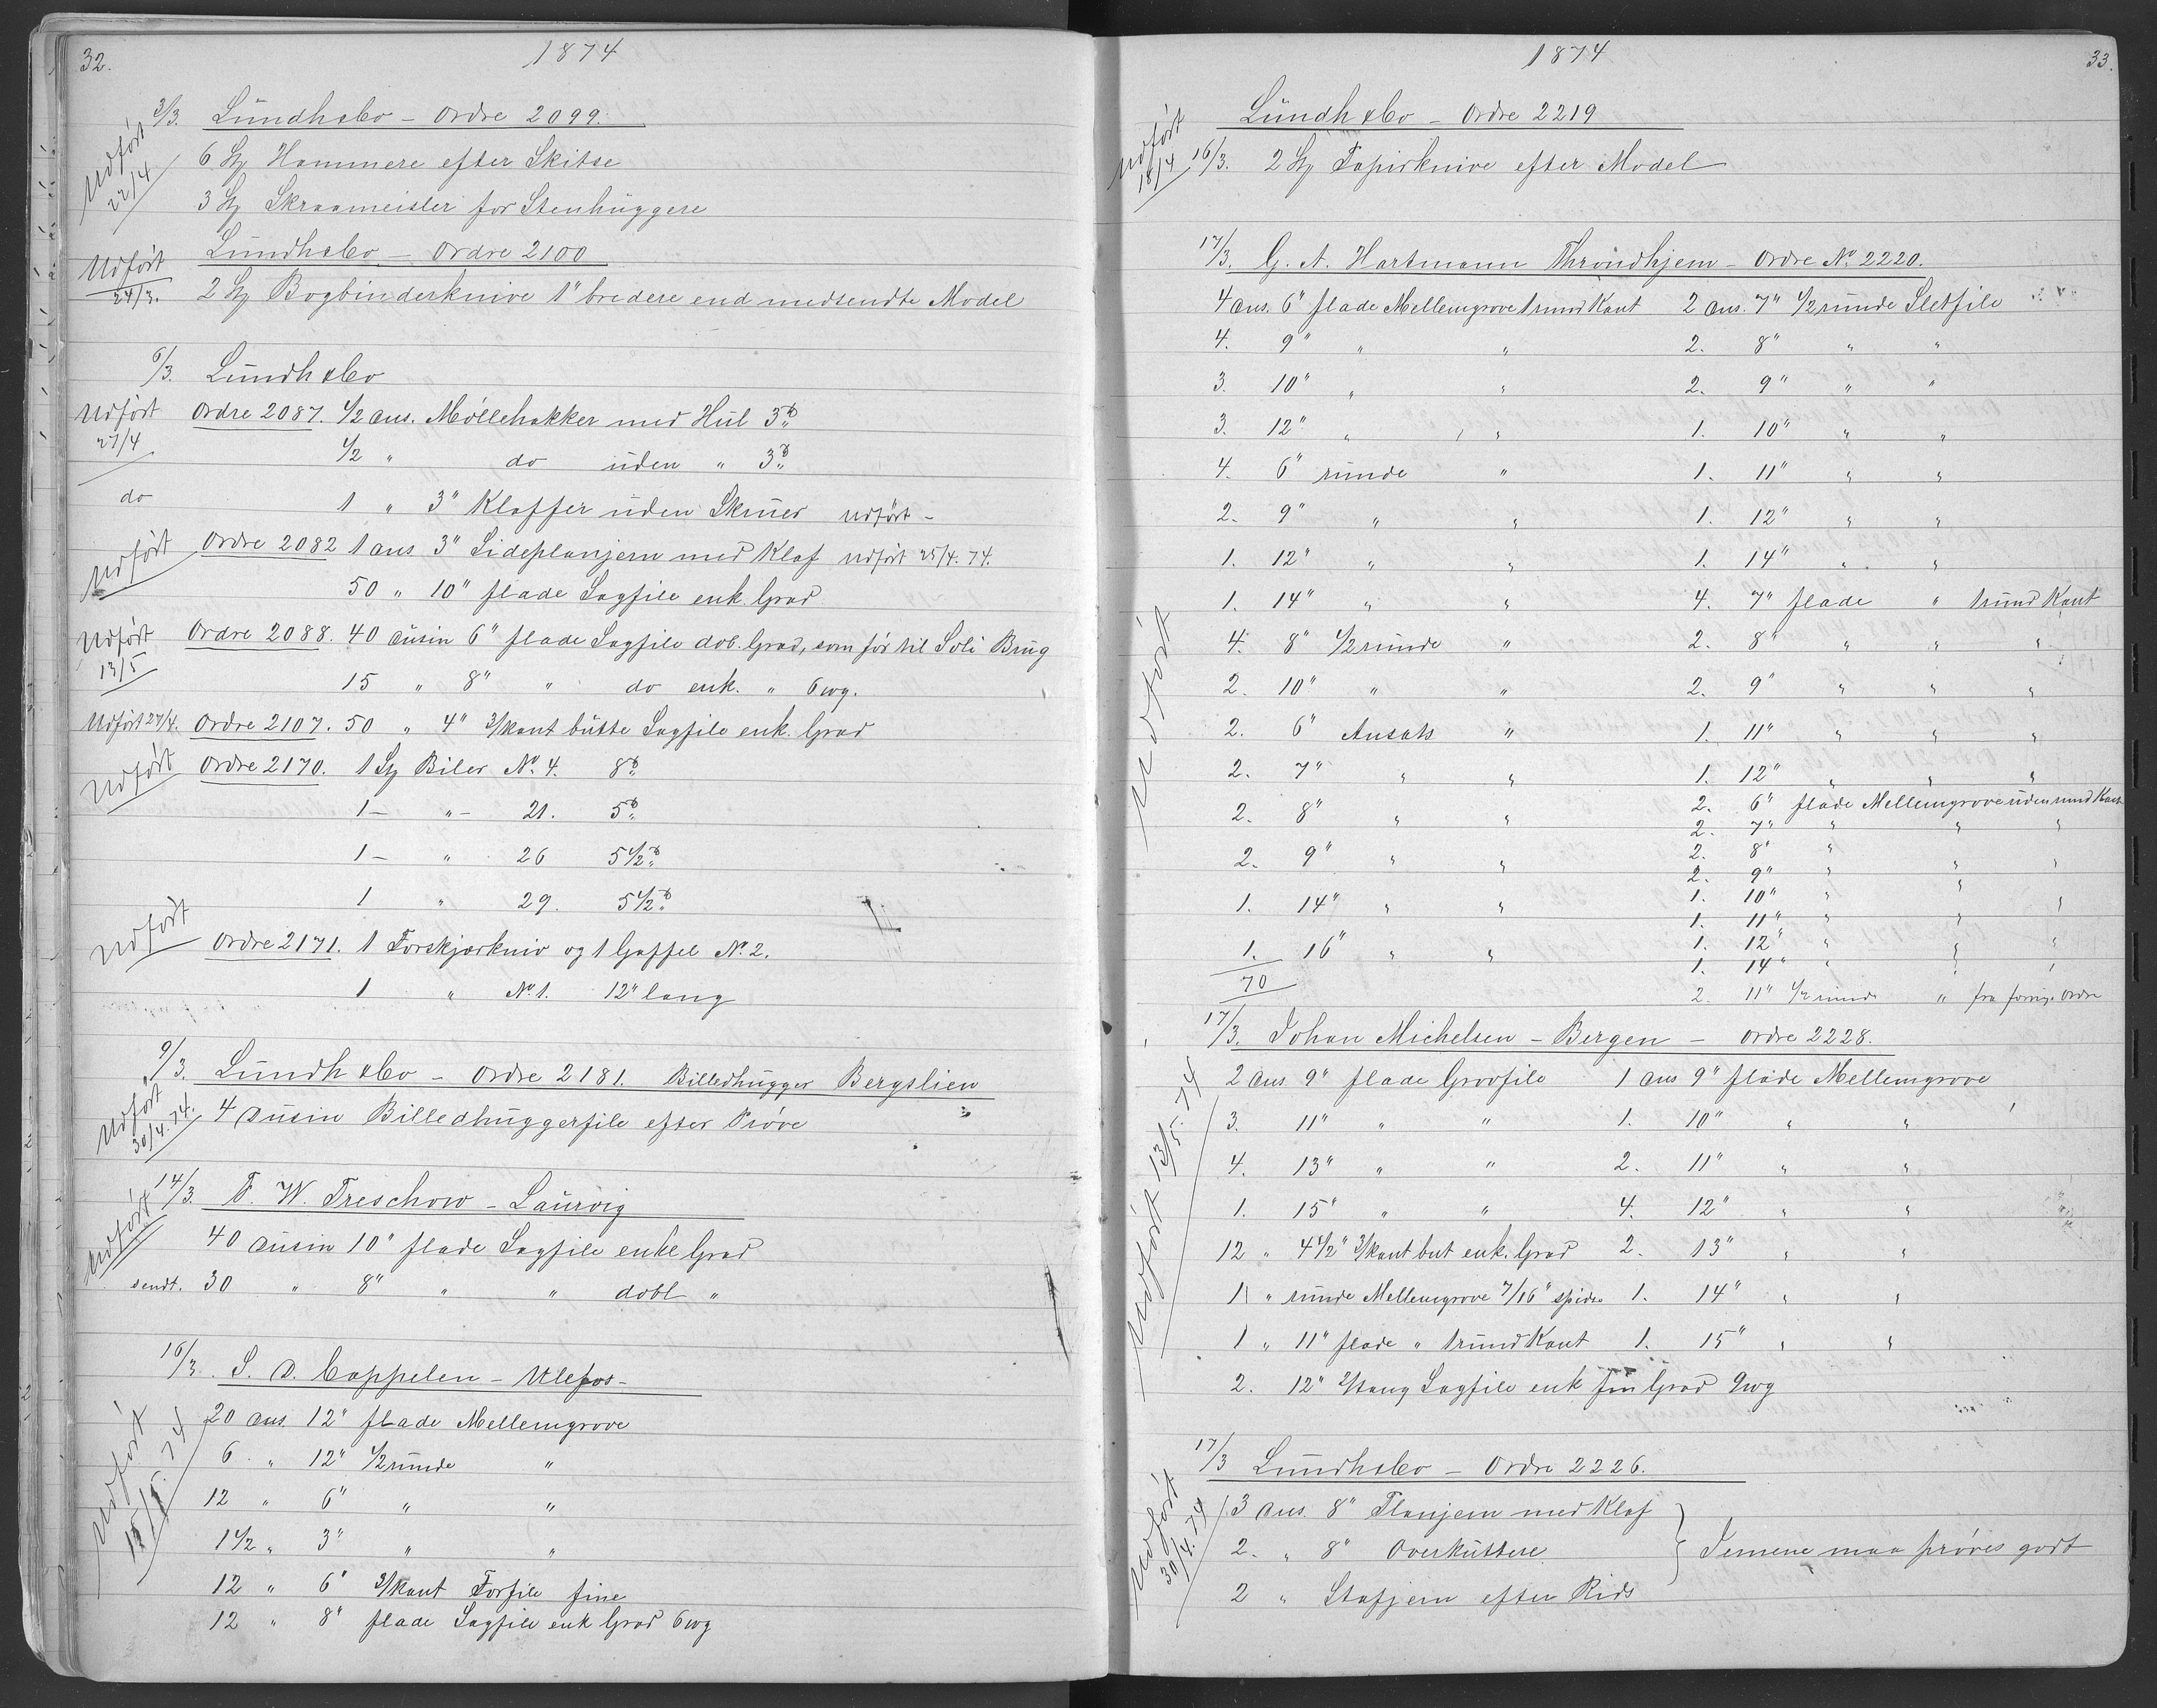 32.
1874
3/3. Lündh & Co – Ordre 2099.
Udført 22/4
6 St Hammere efter Skitse
3 St Skraameisler for Stenhüggere
Lündh & Co – Ordre 2100
Udført 24/3.
2 St Bogbinderknive 1" bredere end medsendte Model
6/3. Lündh & Co
Udført 27/4
Ordre 2087. 1/2 dus. Møllehakker med Hül 3 ℔
1/2 " do üden " 3 ℔
do 1 " 3" Kloffer üden Skrüer Udført –
Udført Ordre 2082 1 dus 3" Sideplanjern med Klaf Udført 25/4. 74.
50 " 10" flade Sagfile enk. Grad
Udført 13/5
Ordre 2088. 40 düsin 6" flade Sagfile dob. Grad, som før til Soli Brüg
15 " 8" " do enk. " 6wg.
Udført 27/4. Ordre 2107. 50 " 4" 3/kant bütte Sagfile enk. Grad
Udført Ordre 2170. 1 St Biler No. 4. 8 ℔
1 – " – 21. 5 ℔
1 – " 26 5 1/2 ℔
1 " 29. 5 1/2 ℔
Udført Ordre 2171. 1 Forskjærkniv og 1 Gaffel No. 2.
1 " No. 1. 12" lang
9/3. Lündh & Co – Ordre 2181. Billedhügger Bergslien
Udført 30/4. 74.
4 Düsin Billedhüggerfile efter Prøve
14/3. F. W. Treschow – Laürvig
Udført
40 düsin 10" flade Sagfile enke Grad
sendt. 30 " 8" " " dobl "
16/3. S. D. Cappelen – Ulefos –
Udført 15/5. 74
20 dus. 12" flade Mellemgrove
6 " 12" 1/2 ründe "
12 " 6" " "
1 1/2 " 3" " "
12 " 6" 3/kant Forfile fine
12 " 8" flade Sagfile enk Grad 6wg
1874
33.
Lündh & Co – Ordre 2219
Udført 18/4
16/3. 2 St Papirknive efter Model
17/3. G. A. Hartmann Thrøndhjem – Ordre No. 2220.
Udført
4 dus. 6" flade Mellemgrove 1 rund Kant 2 dus. 7" 1/2 ründe Sletfile
4. 9" " " 2. 8" " "
3. 10" " " 2. 9" " "
3. 12" " " 1. 10" " "
4. 6" ründe " 1. 11" " "
2. 9" " " 1. 12" " "
1. 12" " " 1. 14" " "
1. 14" " " 4. 7" flade " 1 ründ Kant
4. 8" 1/2 ründe " 2. 8" " " "
2. 10" " " 2. 9" " " "
2. 6" Ansats " 1. 11" " " "
2. 7" " " 1. 12" " " "
2. 8" " " 2. 6" flade Mellemgrove üden rund Kant
2. 7" " " "
2. 9" " " 2. 8" "
2. 9" " " "
1. 14" " " 1. 10" " " "
1. 11" " "
1. 16" " " 1. 12" " " "
70 1. 14" " " "
2. 11" 1/2 ründe " fra forrige Ordre
17/3. Johan Michelsen – Bergen – Ordre 2228.
Udført 13/5. 74
2 dus. 9" flade Grovfile 1 dus 9" flade Mellemgrove
3. 11" " " 1. 10" " "
4. 13" " " 2. 11" " "
1. 15" " " 4. 12" " "
12 " 4 1/2" 3/kant but enk. Grad 2. 13" " "
1 " ründe Mellemgrove 7/16" spidse 1. 14" " "
1 " 11" flade " 1 ründ Kant 1. 15" " "
2. 12" Sagfile enk fin Grad 9wg
17/3 Lündh & Co – Ordre 2226.
Udført 30/4. 74
3 dus. 8" Planjern med Klaf
2. " 8" Overküttere } Jernene maa prøves godt
2 " Stafjern efter Rids